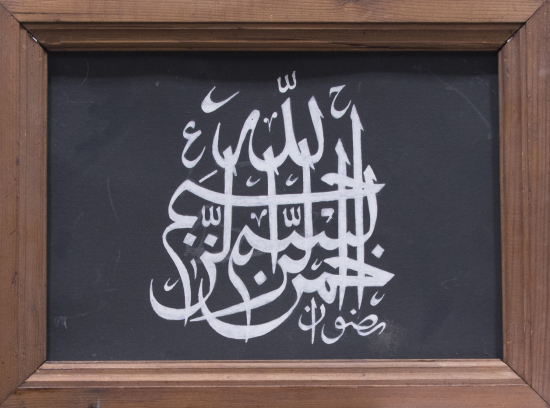 بسم الله الرحمن الرحيم
رضوان